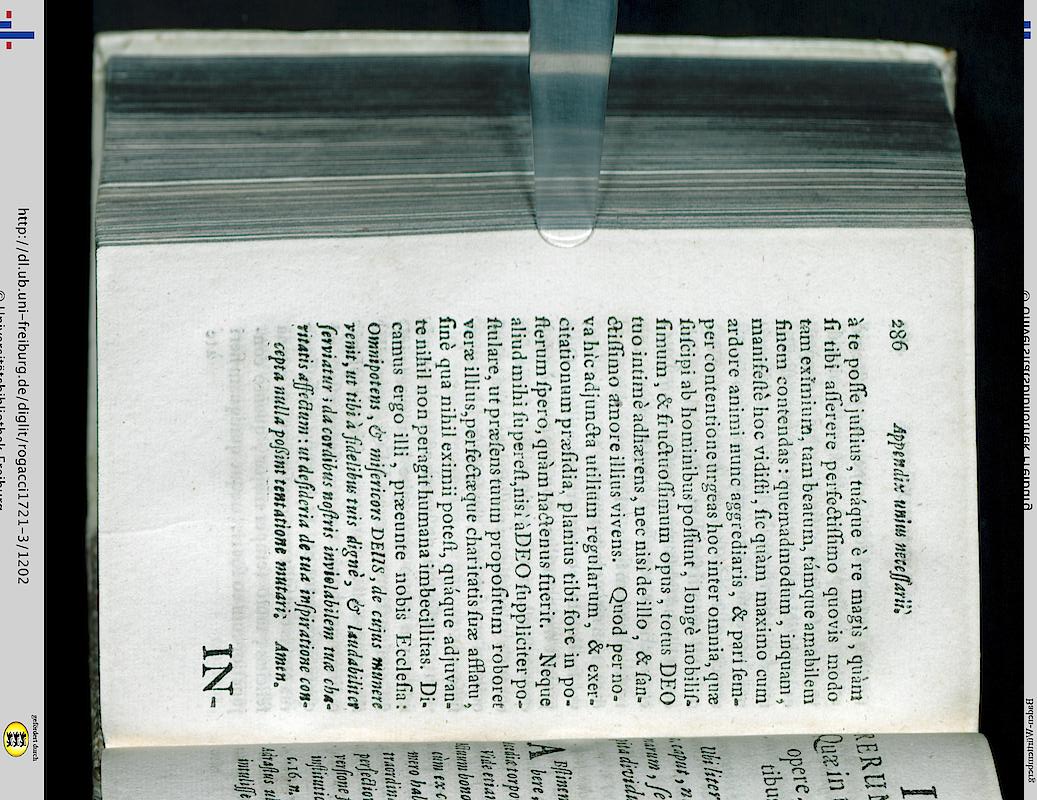 286 Appendix unius necessarii
à te posse justius, tuáque è re magis, quàm
si tibi asserere perfectissimo quovis modo
tam eximium, tam beatum, támque amabilem
finem contendas: quemadmodum, inquam,
manifestè hoc vidisti, sic quàm maximo cum
ardore animi nunc aggrediaris, & pari sem-
per contentione urgeas hoc inter omnia, quæ
suscipi ab hominibus possunt, longè nobilis-
simum, & fructuosissimum opus, totus DEO
tuo intimè adhærens, nec nisi de illo, & san-
ctissimo amore illius vivens. Quod per no-
va hic adjuncta utilium regularum, & exer-
citationum præsidia, planius tibi fore in po-
sterum spero, quàm hactenus fuerit. Neque
aliud mihi superest, nisi à DEO suppliciter po-
stulare, ut præsens tuum propositum roboret
veræ illius, perfectæque charitatis suæ afflatu,
sinè qua nihil eximii potest, quáque adjuvan-
te nihil non peragit humana imbecillitas. Di-
camus ergo illi, præeunte nobis Ecclesia:
omnipotens & misericors DEUS, de cujus munere
venit, ut tibi à fidelibus tuis dignè, & laudabiliter
serviatur; da cordibus nostris inviolabilem tuæ cha-
ritatis affectum: ut desideria de tua inspiratione con-
cepta nulla possint tentatione mutari. Amen.
IN-
RERUM
Quæ in
opere
tibus
Ubi liter
caput, n.
A
bere,
http://dl.ub.uni-freiburg.de/diglit/rogacci1721-3/1202
© Universitätsbibliothek Freiburg
gefördert durch
Baden-Württemberg